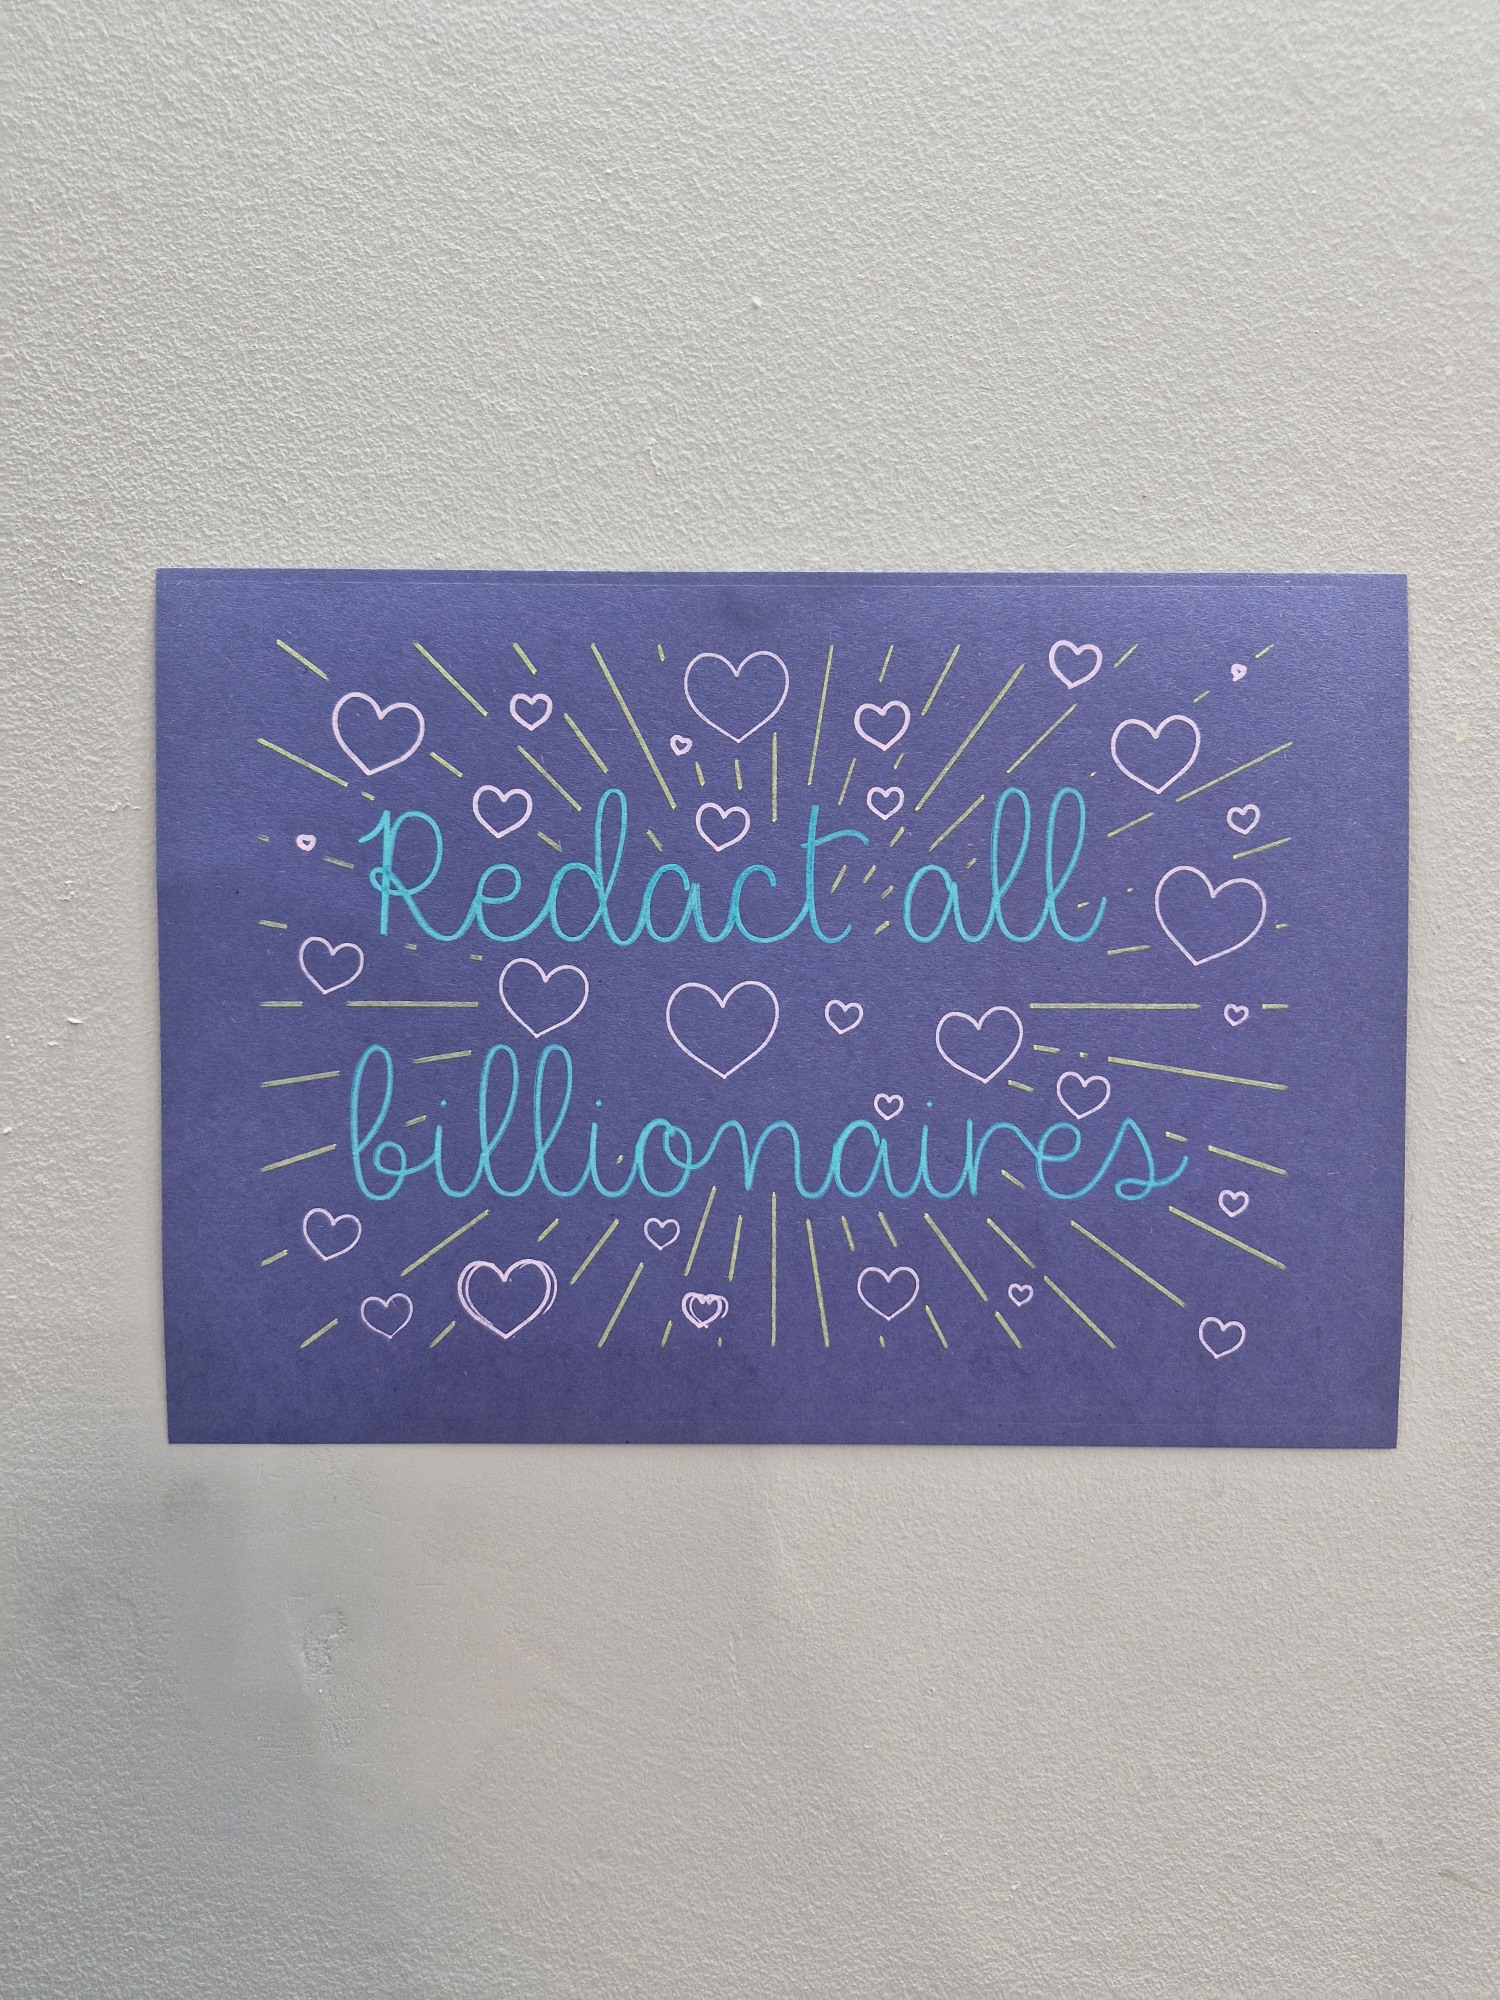 Redact all
billionaires